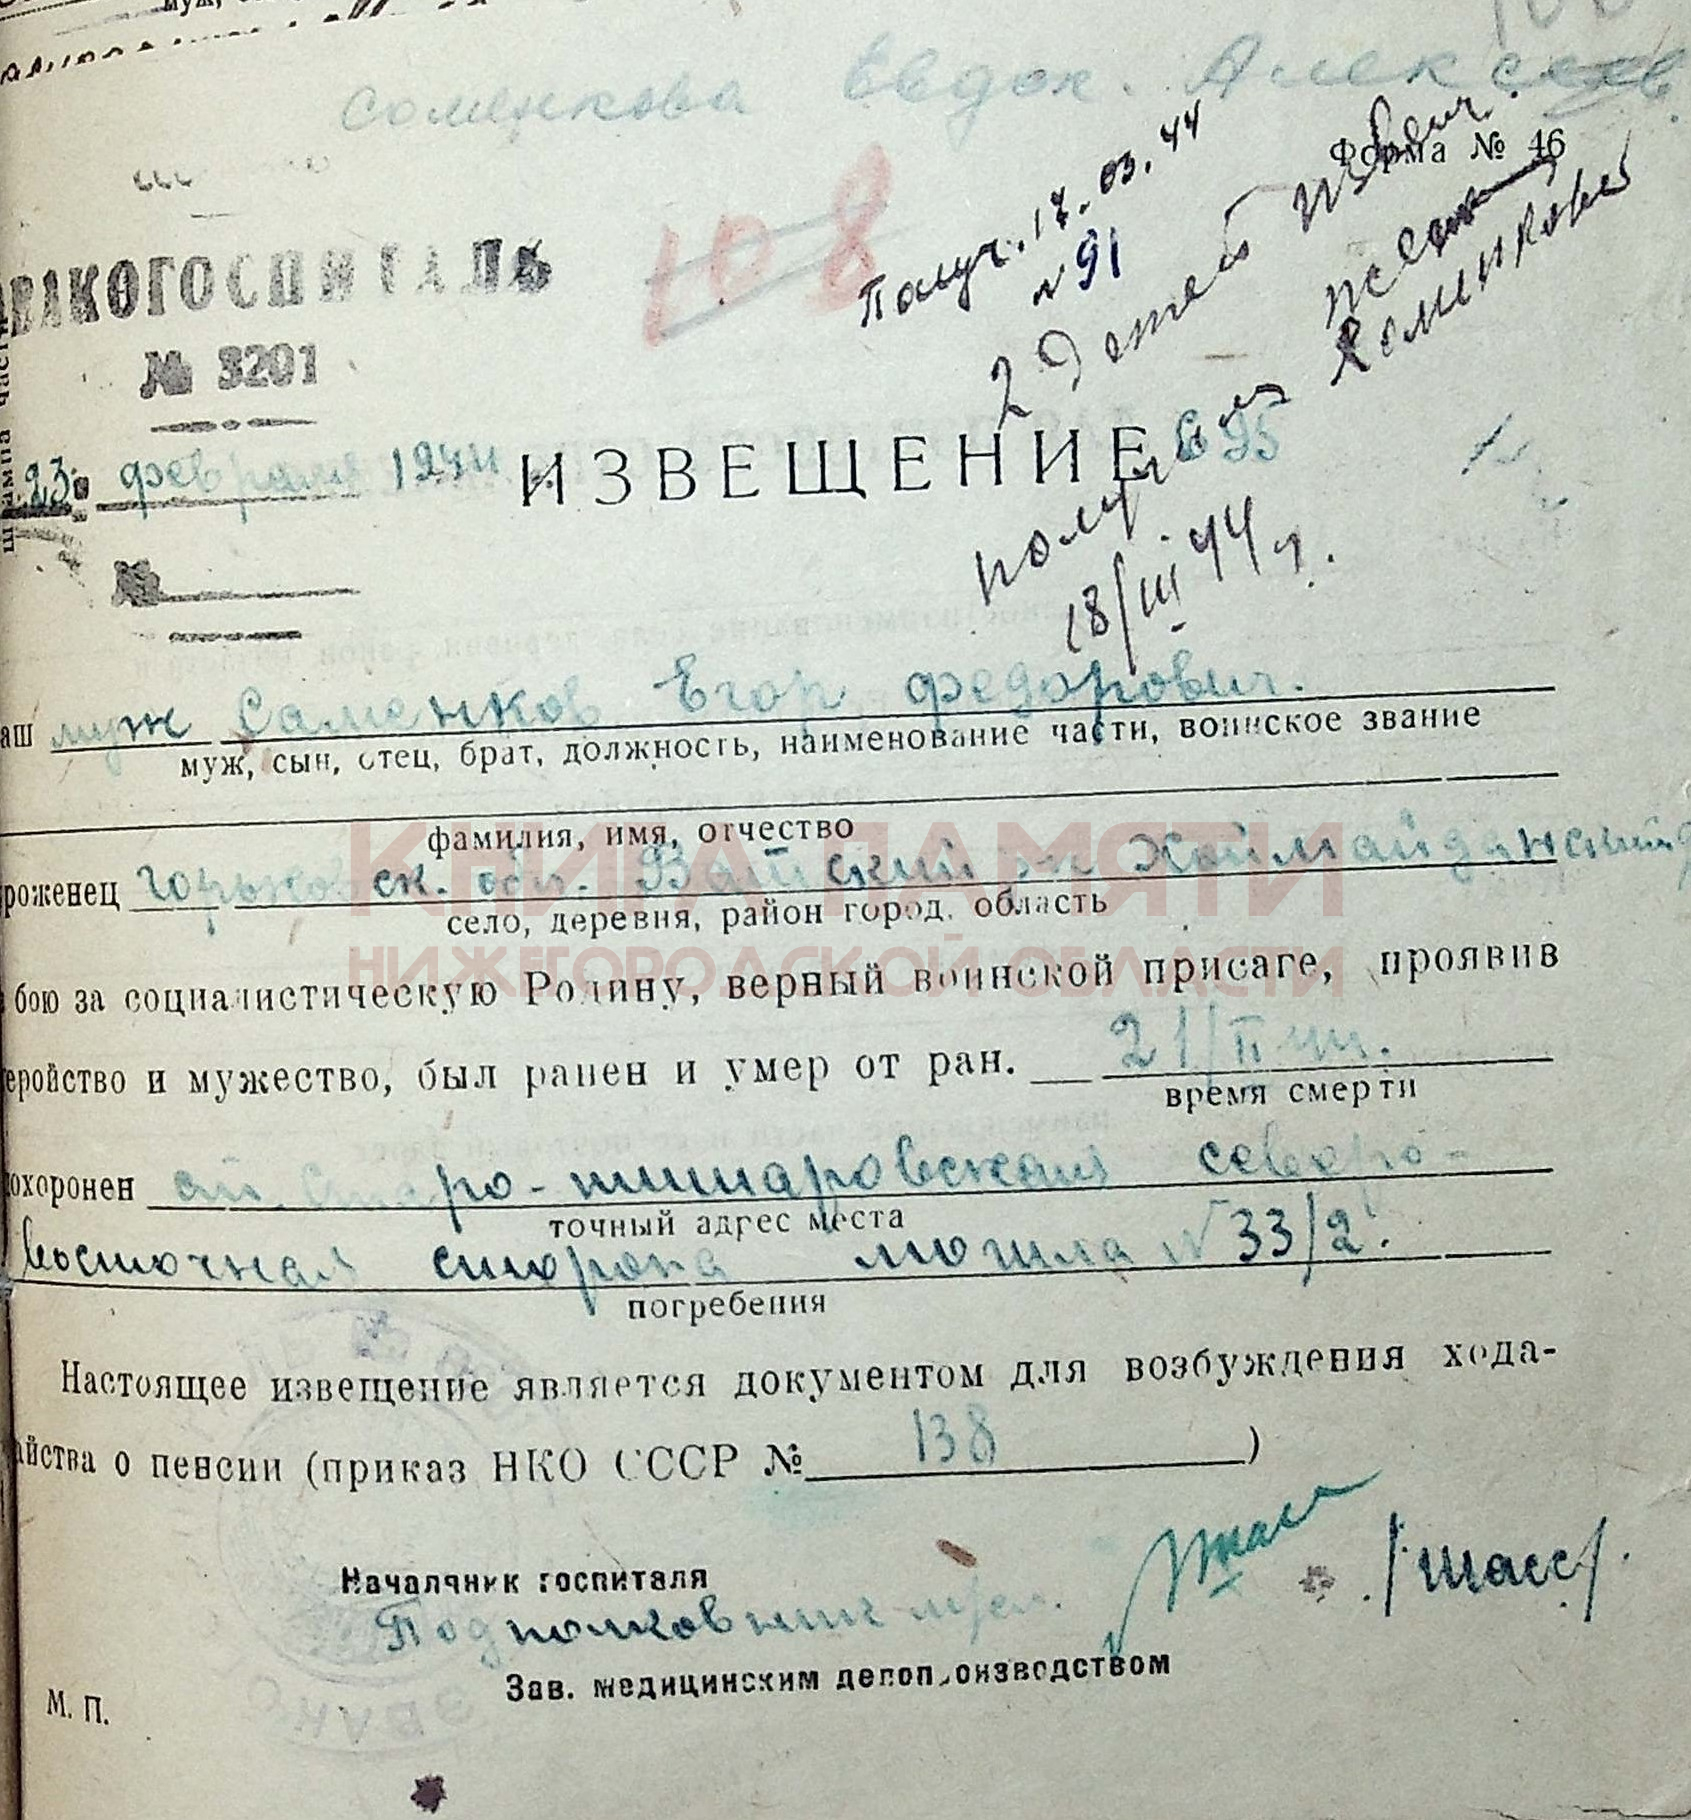 соменкова Евдок. Алексеев
Форма № 46
Получ. 17.03.44
№ 91
2 детей
108
ВАКОГОСПИТАЛЬ
№ 3201
23 февраля 1944
ИЗВЕЩЕНИЕ
18/III 44 г.
№
аш муж Саменков Егор Федорович.
муж, сын, отец, брат, должность, наименование части, воинское звание
фамилия, имя, отчество
роженец Горьковск. обл. Ватский рн Холмайданский
село, деревня, район город, область
КНИГА ПАМЯТИ
НИЖЕГОРОДСКОЙ ОБЛАСТИ
бою за социалистическую Родину, верный воинской присяге, проявив
еройство и мужество, был ранен и умер от ран. 21/II 44.
время смерти
охоронен ст. Старо-титаровская северо-
точный адрес места
восточная сторона могила № 33/2.
погребения
Настоящее извещение является документом для возбуждения хода-
айства о пенсии (приказ НКО СССР № 138 )
Начальник госпиталя
Подполковник м/сл. /Шасс/.
Зав. медицинским делопроизводством
М. П.